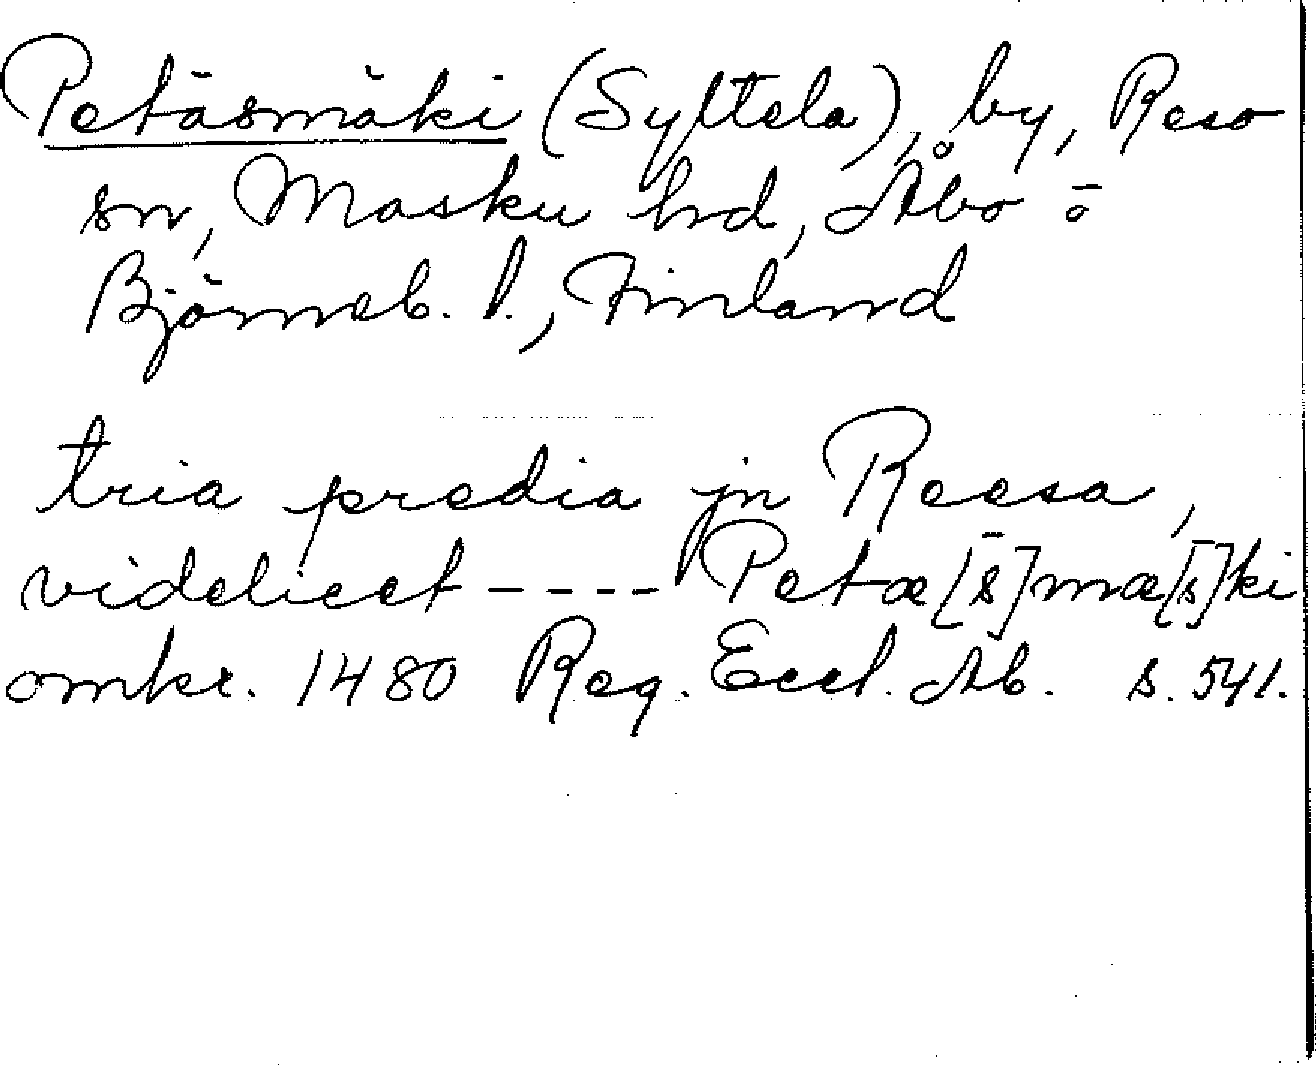 Petäsmäki (Syltela), by, Reso
sn, Masku hd, Åbo o
Björneb. l., Finland
tria predia jn Reesa,
videlicet - - - - Petæ[s]mæ[s]ki
omkr. 1480 Reg. Eccl. Ab. s. 541.